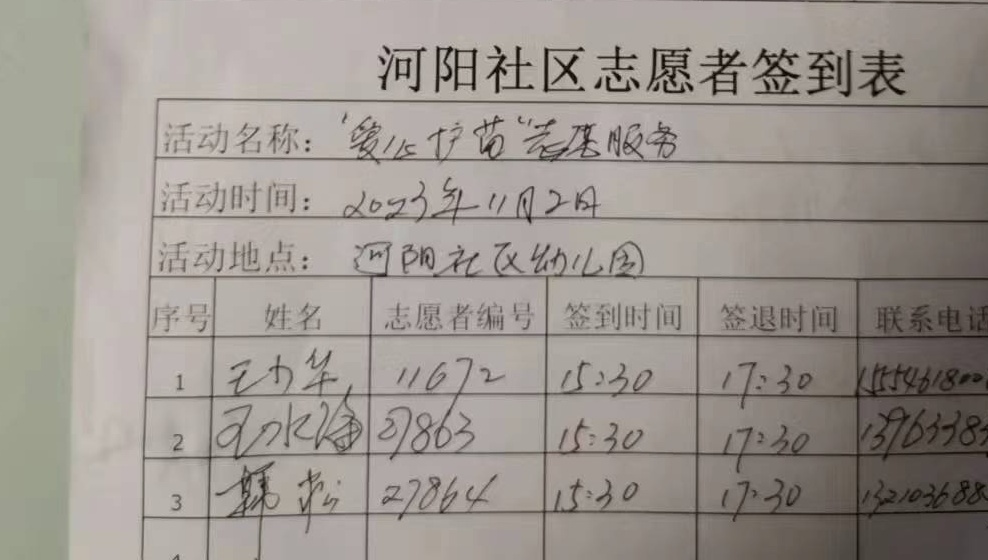 河阳社区志愿者签到表
活动名称：“爱心护苗”志愿服务
活动时间：2023年11月2日
活动地点：河阳社区幼儿园
序号 姓名 志愿者编号 签到时间 签退时间 联系电话
1 王力华 11672 15:30 17:30
2 27863 15:30 17:30
3 韩松 27864 15:30 17:30